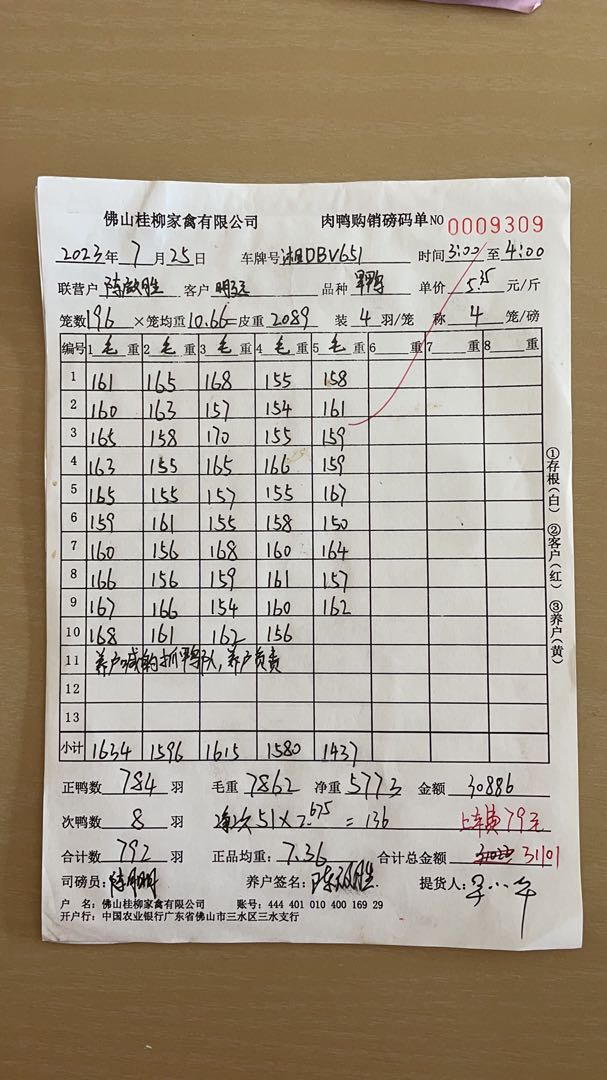 佛山桂柳家禽有限公司 肉鸭购销磅码单 NO 0009309
2023年 7月 25日 车牌号 湘DBV651 时间 3:00 至 4:00
联营户 客户 明远 品种 单价 5.35 元/斤
笼数 196 ×笼均重 10.66 =皮重 2089 装 4 羽/笼 称 4 笼/磅
编号 1 毛 重 2 毛 重 3 毛 重 4 毛 重 5 毛 重 6 重 7 重 8 重
1 161 165 168 155 158
2 160 163 157 154 161
3 165 158 170 155 159
4 163 155 165 166 159
5 165 155 157 155 167
6 159 161 155 158 150
7 160 156 168 160 164
8 166 156 159 161 157
9 167 166 154 160 162
10 168 161 162 156
11 养户喊的抓鸭队,养户负责
12
13
小计 1634 1596 1615 1580 1437
正鸭数 784 羽 毛重 7862 净重 5773 金额 30886
次鸭数 8 羽 51×2.675=136 上车费79元
合计数 792 羽 正品均重: 7.36 合计总金额 31101
司磅员: 养户签名: 提货人:
户 名: 佛山桂柳家禽有限公司 账号: 444 401 010 400 169 29
开户行: 中国农业银行广东省佛山市三水区三水支行
①存根(白) ②客户(红) ③养户(黄)